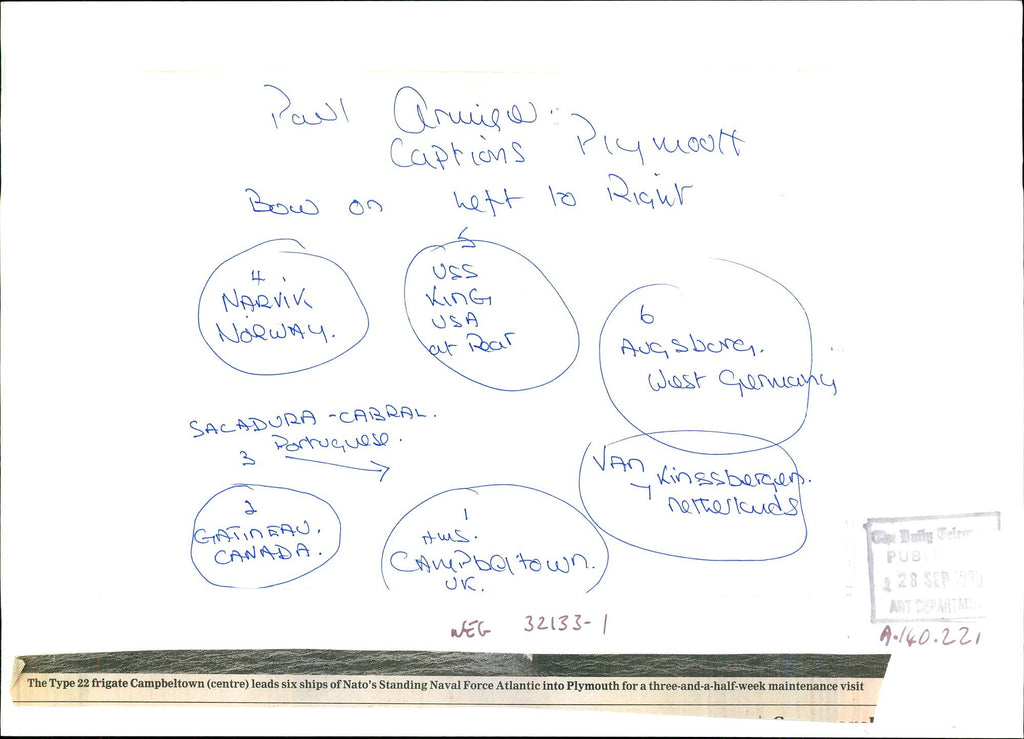 Paul Armiger:
Captions Plymouth
Bow on Left to Right
4.
NARVIK
NORWAY.
5
USS
KING
USA
at Rear
6
Augsburg.
West Germany
SACADURA-CABRAL.
Portuguese.
3
7
VAN Kinssbergen.
Netherlands
2
GATINEAU.
CANADA.
1
HMS.
CAMPbeltown.
UK.
The Daily Telegr
PUBL
28 SEP 1990
ART DEPARTME
NEG 32133-1
A.140.221
The Type 22 frigate Campbeltown (centre) leads six ships of Nato's Standing Naval Force Atlantic into Plymouth for a three-and-a-half-week maintenance visit